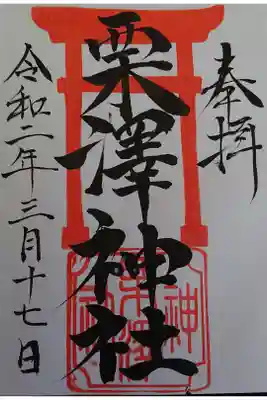 奉拝
栗澤神社
令和二年三月十七日